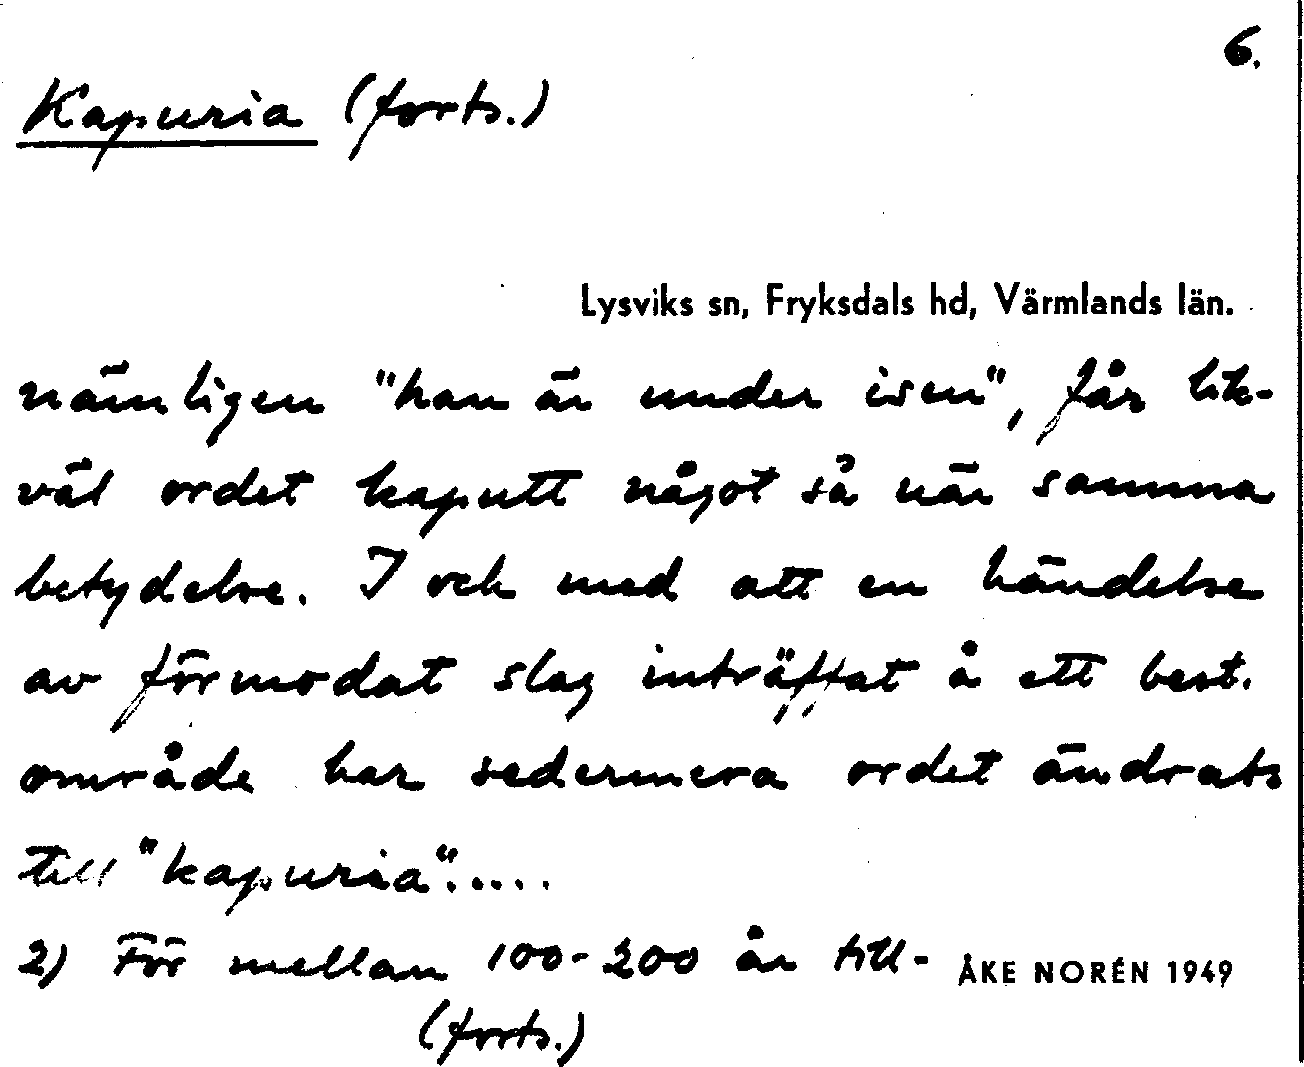 6.
Kapuria (forts.)
Lysviks sn, Fryksdals hd, Värmlands län.
nämligen "han är under isen", får lik-
väl ordet kaputt något så när samma
betydelse. I och med att en händelse
av förmodat slag inträffat å ett best.
område har sedermera ordet ändrats
till "kapuria".....
2) För mellan 100-200 år till-
ÅKE NORÉN 1949
(forts.)